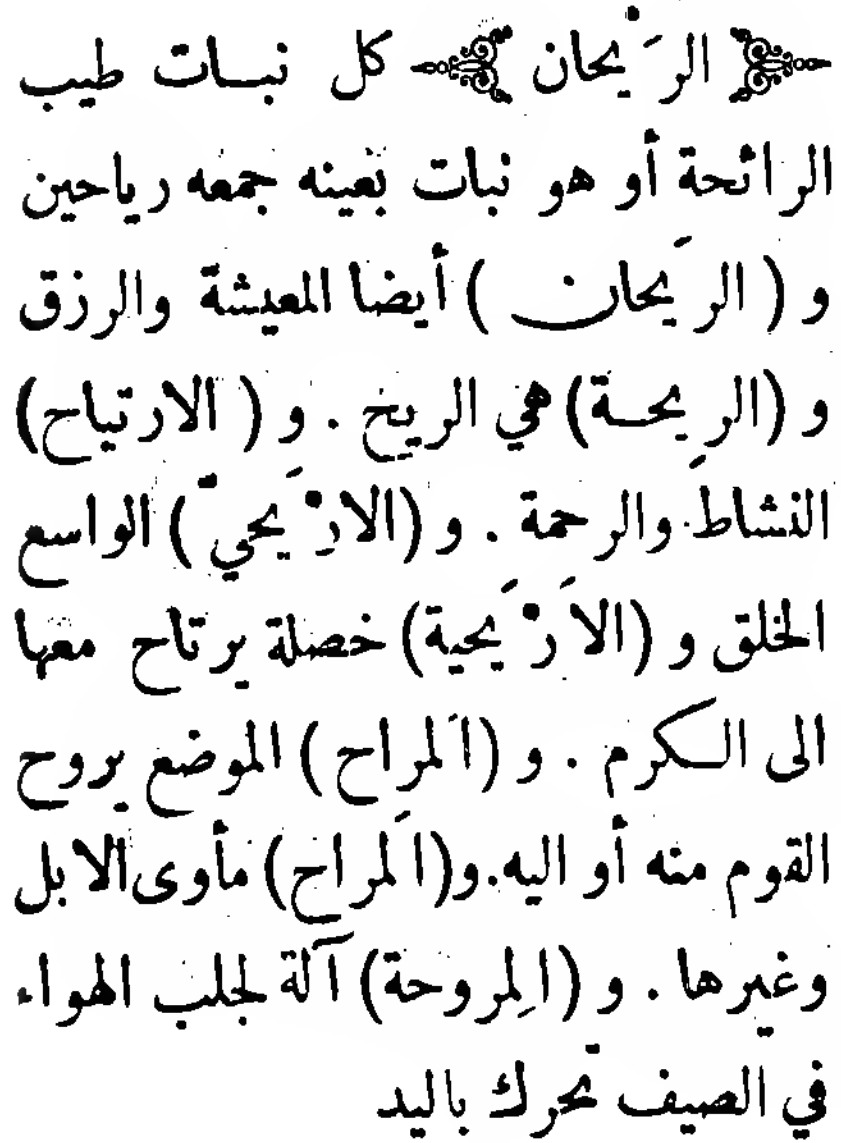 الرَيْحان كل نبات طيب
الرائحة أو هو نبات بعينه جمعه رياحين
و (الرَيحان) أيضا المعيشة والرزق
و (الريحة) هي الريح . و (الارتياح)
النشاط والرحمة . و (الارْيَحيّ) الواسع
الخلق و (الأَرْيَحية) خصلة يرتاح معها
الى الكرم . و (المَراح) الموضع يروح
القوم منه أو اليه.و(المَراح) مأوى الابل
وغيرها . و (المِروحة) آلة لجلب الهواء
في الصيف تحرك باليد